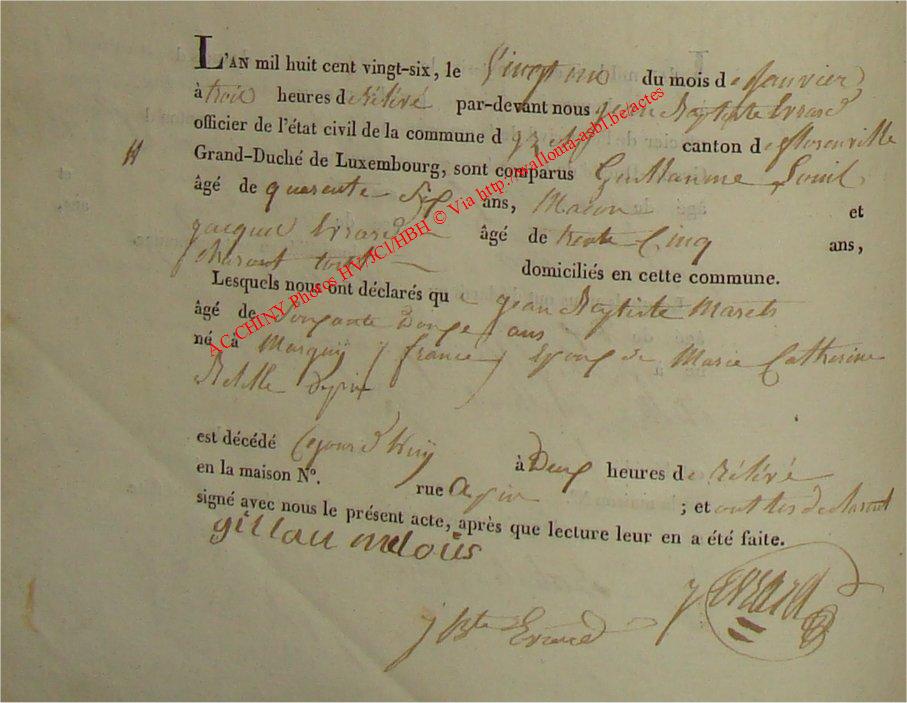 L'AN mil huit cent vingt-six, le Vingt un du mois de Janvier
à trois heures de rélévé par-devant nous jean Baptiste Evrard
officier de l'état civil de la commune d canton de florenville
Grand-Duché de Luxembourg, sont comparus Guillaume Louis
âgé de quarente Six ans, Macon et
jacque Evrard âgé de trente Cinq ans,
domiciliés en cette commune.
Lesquels nous ont déclarés que jean Baptiste Marets
âgé de Soixante Douze ans
né à Margny ( france ) Epoux de Marie Catherine
est décédé Cejourd'huy à Deux heures de rélévé
en la maison N°. rue ; et ont les declarant
signé avec nous le présent acte, après que lecture leur en a été faite.
gillau me loüis
j Bte Evrard J Evrard
AC CHINY Photos HV/JCl/HBH © Via http://wallonia-asbl.be.actes